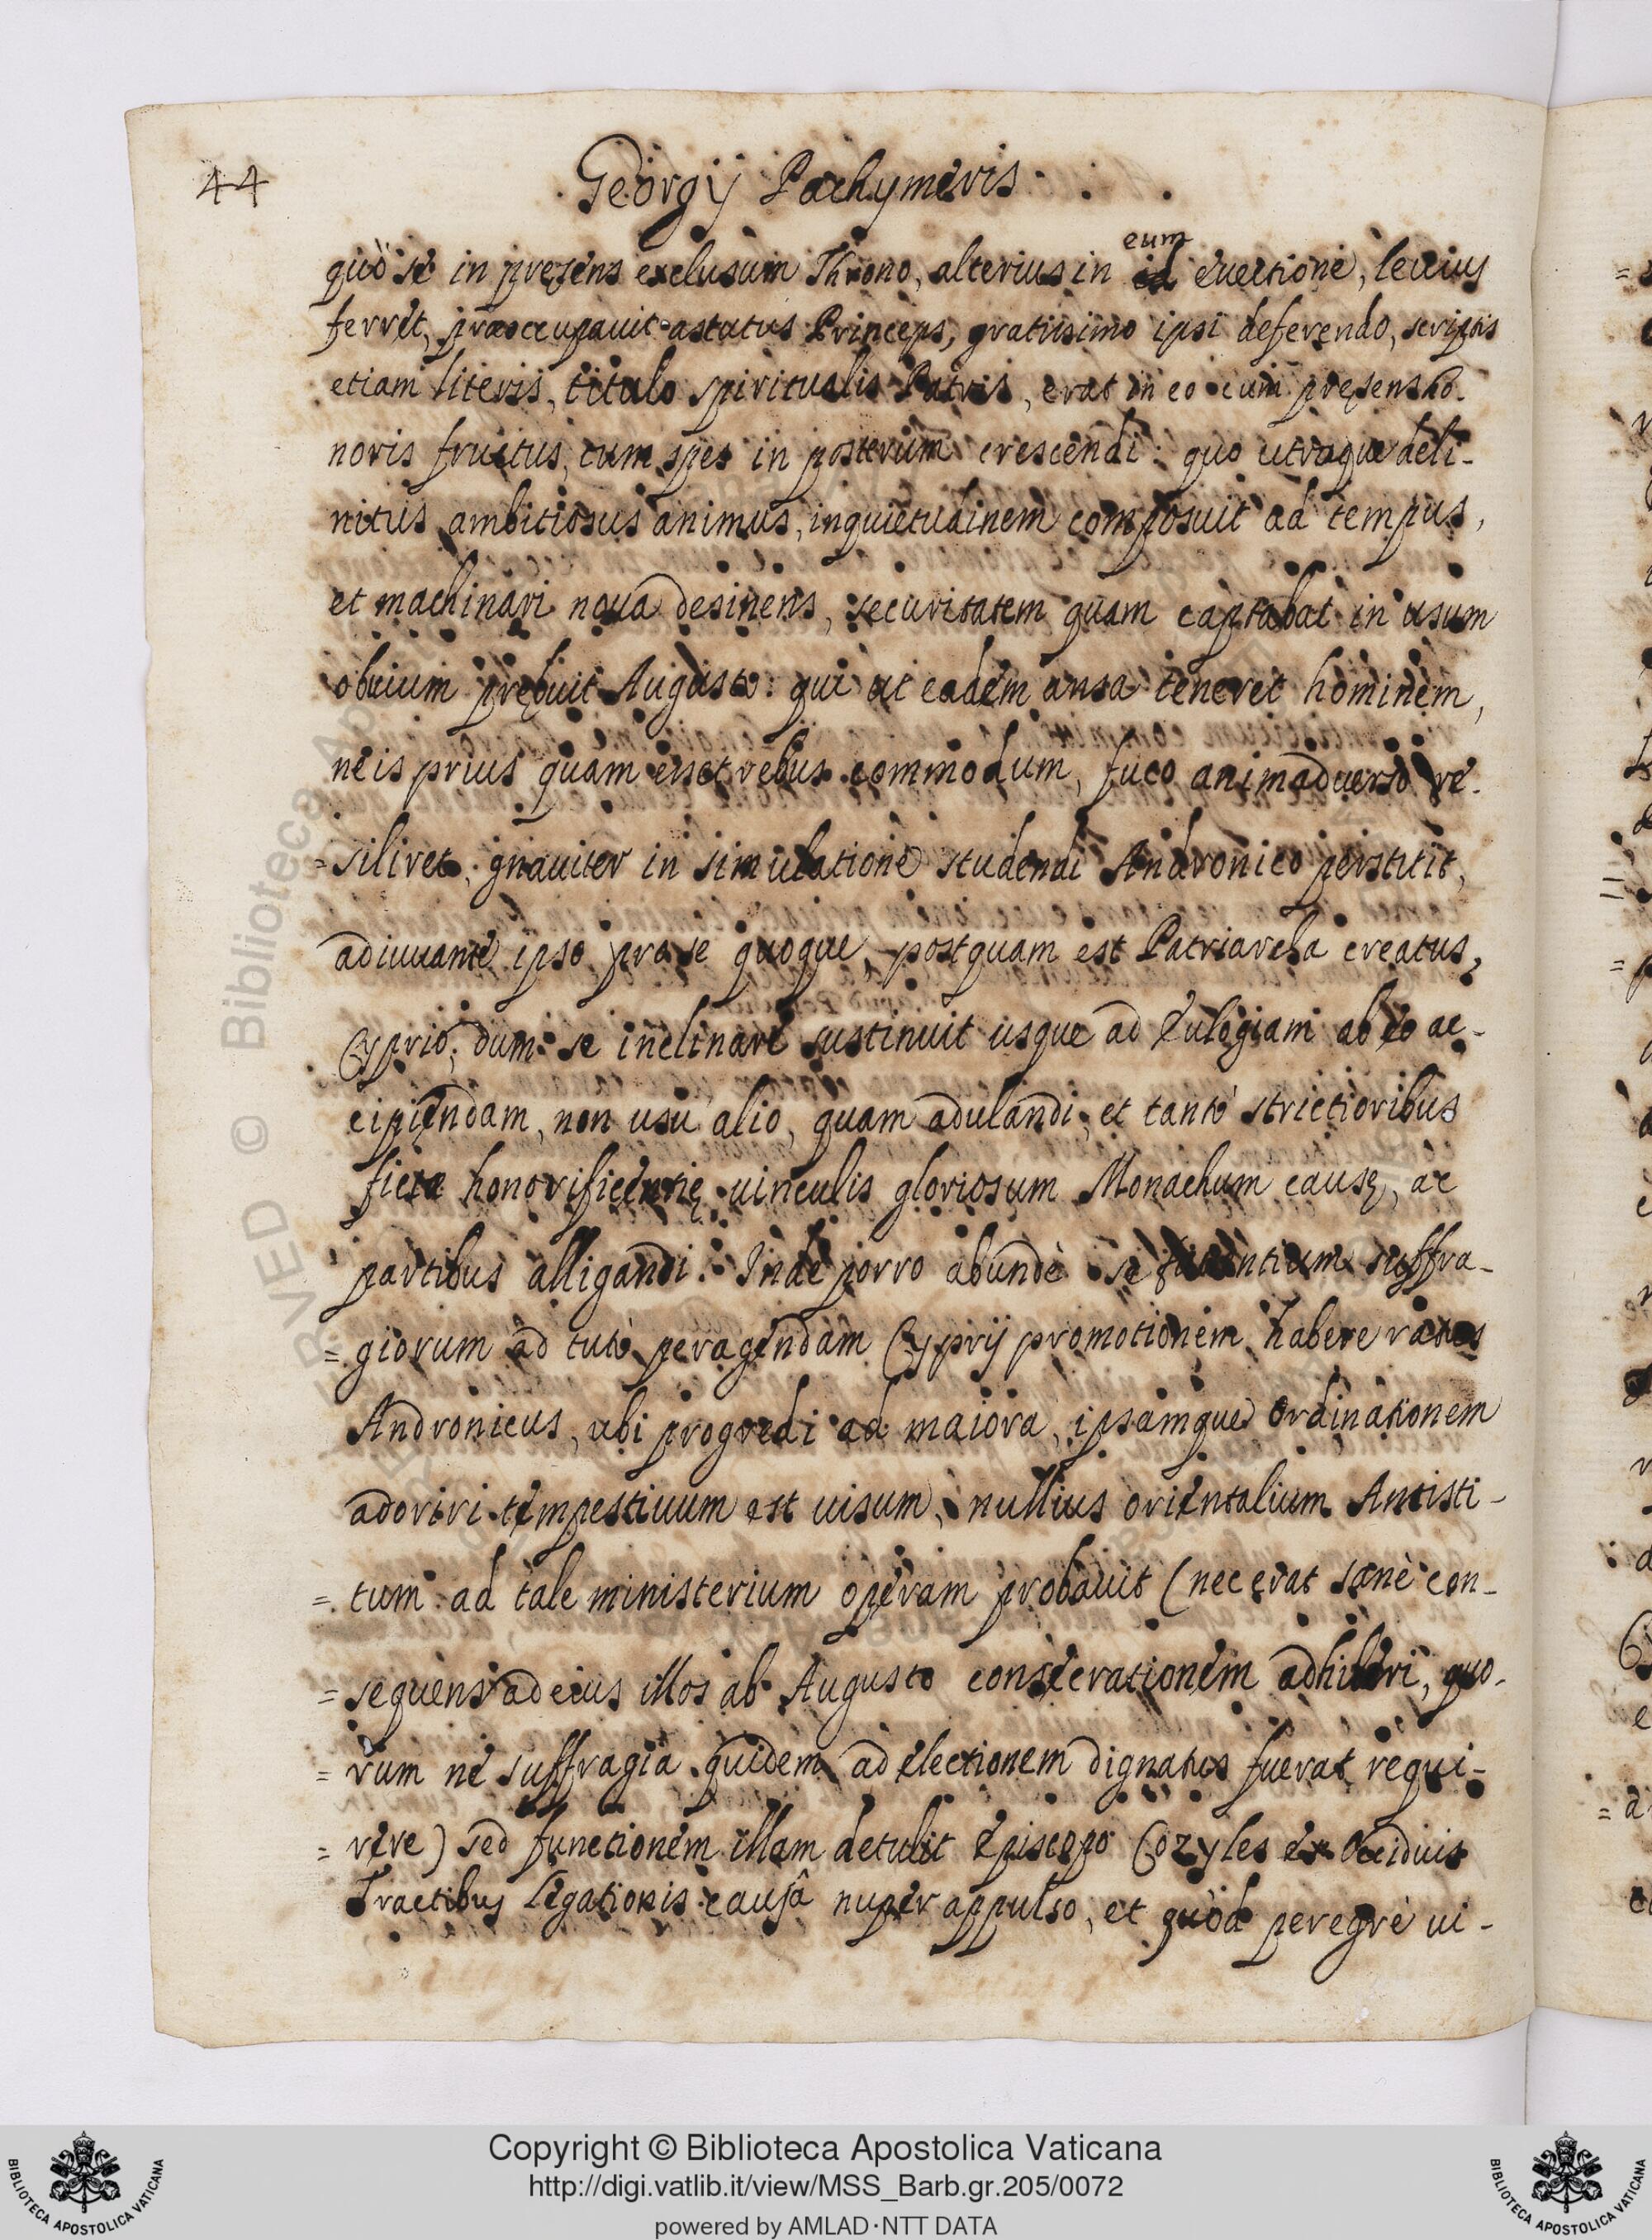 44
Georgij Pachymeris
quò se in presens exclusum Throno, alterius in eum euectione, leuius
ferret, præoccupauit astutus Princeps, gratiisimo ipsi deferendo, scriptis
etiam literis, titulo spiritualis Patris, erat in eo cum presens ho-
noris fructus, tum spes in posterum crescendi: quo utroque deli-
nitus ambitiosus animus, inquietudinem composuit ad tempus,
et machinari noua desinens, securitatem quam captabat in usum
obuium prębuit Augusto: qui ut eadem ansa teneret hominem,
ne is prius quam esset rebus commodum, fuco animaduerso re-
= siliret, gnauiter in simulatione studendi Andronico perstitit,
adiuuante ipso pro se quoque, postquam est Patriarcha creatus,
Cyprio, dum se inclinare sustinuit usque ad Eulogiam ab eo ac-
cipiendam, non usu alio, quam adulandi, et tantò strictioribus
fictæ honorificentię uinculis gloriosum Monachum causę, ac
partibus alligandi. Inde porro abundè se suffra-
= giorum ad tutò peragendam Cyprij promotionem habere ratus
Andronicus, ubi progredi ad maiora, ipsamque Ordinationem
adoriri tempestiuum est uisum, nullius orientalium Antisti-
= tum ad tale ministerium operam probauit (nec erat sanè con-
= sequens ad eius illos ab Augusto consecrationem adhiberi, quo-
= rum ne suffragia quidem ad electionem dignatus fuerat requi-
= rere) sed functionem illam detulit Episcopo Cozyles ex Occiduis
Tractibus legationis causâ nuper appulso, et quòd peregrè ui-
© Biblioteca
Copyright © Biblioteca Apostolica Vaticana
http://digi.vatlib.it/view/MSS_Barb.gr.205/0072
powered by AMLAD·NTT DATA
BIBLIOTECA APOSTOLICA VATICANA
BIBLIOTECA APOSTOLICA VATICANA